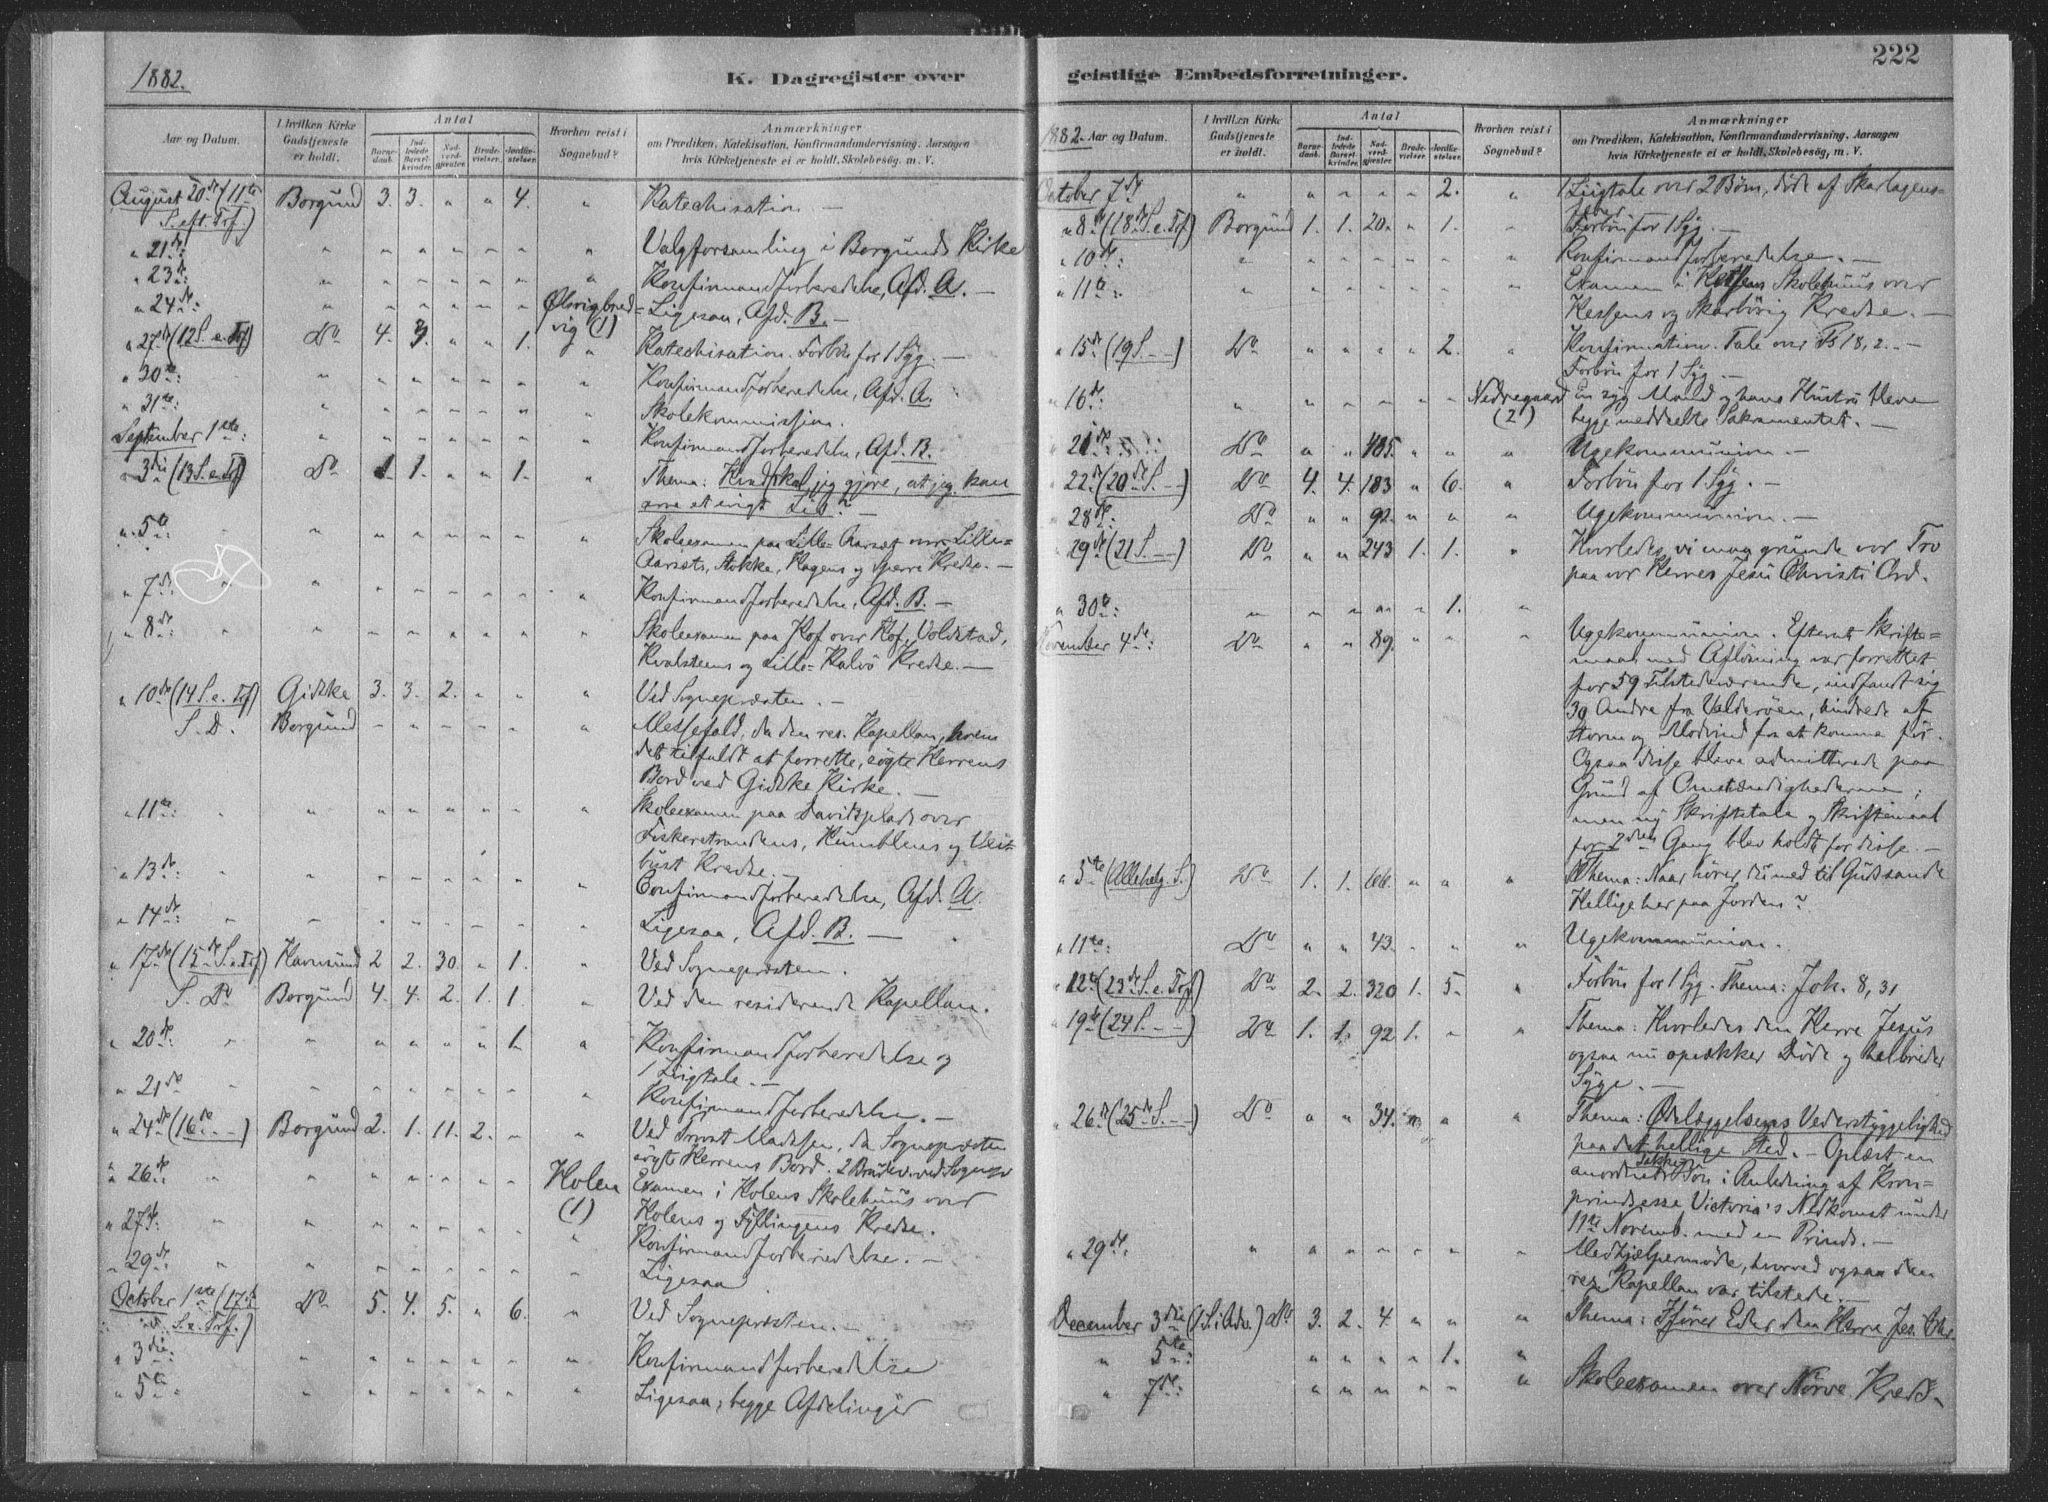 1882.
K. Dagregister over
Aar og Datum.
I hvilken Kirke Gudstjeneste er holdt.
Antal
Barnedaab.
Indledede Barselkvinder.
Nadverdgjæster.
Brudevielser.
Jordfæstelser.
Hvorhen reist i Sognebud?
Anmærkninger
om Prædiken, Katekisation, Konfirmandundervisning. Aarsagen
hvis Kirketjeneste ei er holdt, Skolebesög. m. V.
August 20de (11te Borgund 3. 3. " " 4. " Katechisation. —
S. eft. Trf.)
" 21de: " " " " " " " Valgforsamling i Borgunds Kirke
" 23de " " " " " " " Konfirmandforberedelse, Afd. A. —
" 24de: " " " " " " Ligesaa, Afd. B. —
vig (1)
" 27de (12 S. e. Trf) Do 4. 3. " " 1. " Katechisation. Forbön for 1 Syg. —
" 30te: " " " " " " " Konfirmandforberedelse, Afd. A.
" 31te: " " " " " " " Skolekommission.
September 1ste: " " " " " " " Konfirmandforberedelse, Afd. B.
" 3die (13 S. e. Trf) Do 1. 1. " " 1. " Thema: Hvad skal jeg gjöre, at jeg kan
arve et evigt Liv? —
" 5te " " " " " " " Skoleexamen paa Lille-Aarsæt over Lille-
Aarsets, Stokke, Hagens og Sperre Kredse. —
" 7de: " " " " " " " Konfirmandforberedelse, Afd. B. —
" 8de: " " " " " " " Skoleexamen paa Hof over Hof, Voldstad,
Kvalsteens og Lille-Kalvö Kredse. —
" 10de (14 S. e. Trf) Gidske 3. 3. 2. " " " Ved Sognepræsten. —
S. D. Borgund " " " " " " Messefald, da den res. Kapellan, hvem
det tilfaldt at forrette, sögte Herrens
Bord ved Gidske Kirke. —
" 11te " " " " " " " Skoleexamen paa Davidsplads over
Fiskerstrandens, Humblens og Veibust Kredse.
" 13de " " " " " " " Confirmandforberedelse, Afd. A.
" 14de: " " " " " " " Ligesaa, Afd. B. —
" 17de (15de S. e. Trf) Havnsund 2 2. 30. " 1. " Ved Sognepræsten.
S. Do Borgund 4. 4. 2. 1. 1. " Ved den residerende Kapellan.
" 20de: " " " " " 1. " Konfirmandforberedelse og
1 Liigtale. —
" 21de " " " " " " " Konfirmandforberedelse. —
" 24de (16de — —) Borgund 2. 1. 11. 2. " " Ved Provst Madssen, da Sognepræsten
sögte Herrens Bord. 2 Brudev. ved Sognepr
" 26de: " " " " " " Holen (1) Examen i Holens Skolehuus over
Holens og Fyllingens Kredse.
" 27de: " " " " " " " Konfirmandforberedelse. —
" 29de: " " " " " " " Ligesaa
October 1ste (17de Do 5. 4. 5. " 6. " Ved Sognepræsten. —
S. e. Trf.)
" 3die: " " " " " " " Konfirmandforberedelse
" 5te " " " " " " " Ligesaa, begge Afdelinger
222
geistlige Embedsforretninger.
1882. Aar og Datum.
I hvilken Kirke Gudstjeneste er holdt.
Antal
Barnedaab.
Indledede Barselkvinder.
Nadverdgjæster.
Brudevielser.
Jordfæstelser.
Hvorhen reist i Sognebud?
Anmærkninger
om Prædiken, Katekisation, Konfirmandundervisning. Aarsagen
hvis Kirketjeneste ei er holdt, Skolebesög, m. V.
October 7de " " " " " 2. " 1 Liigtale over 2 Börn, döde af Skarlagens-
feber
" 8de (18de S. e. Trf) Borgund 1. 1. 20. " 1. " Forbön for 1 Syg. —
" 10de: " " " " " " " Konfirmandforberedelse. —
" 11te: " " " " " " " Examen i Skolehuus over
Hessens og Skarbövig Kredse. —
" 15de (19 S. — —) Do " " " " 2. " Konfirmation. Tale over Ps 18,2. —
Forbön for 1 Syg. —
" 16de: " " " " " " Nedregaard (2) En syg Mand og hans Hustru
begge meddeelte Sakramentet. —
" 21de Do " " 185. " " " Ugekommunion. —
" 22de (20de S. — —) Do 4. 4. 183 " 6. " Forbön for 1 Syg. —
" 28de Do " " 92. " " " Ugekommunion. —
" 29de (21 S. — —) Do " " 243 1. 1. " Hvorledes vi maa grunde vor Tro
paa vor Herres Jesu Christi Ord.
" 30te: " " " " " 1. "
November 4de: Do " " 89. " " " Ugekommunion. Efterat Skrifte-
maal med Aflösning var forrettet
for 59 Tilstedeværende, indfandt sig
30 Andre fra Valderöen, hindrede af
Storm og Modvind fra at komme för.
Ogsaa disse bleve admitterede paa
Grund af Omstændighederne;
men ny Skriftetale og Skriftemaal
for 2den Gang blev holdt for disse. —
" 5te (Allehelg. S.) Do 1. 1. 66. " " " Thema: Naar hörer du med til Guds sande
Hellige her paa Jorden?
" 11te: Do " " 43. " " " Ugekommunion.
" 12te (23de S. e. Trf) Do 2. 2. 320 1. 5. " Forbön for 1 Syg. Thema: Joh. 8,31
" 19de (24 S. — —) Do 1. 1. 92. 1. " " Thema: Hvorledes den Herre Jesus
ogsaa nu opvækker Döde og helbreder
Syge. —
" 26de (25de S. — —) Do " " 34. " " " Thema: Ödelæggelsens Vederstyggelighed
paa det hellige Sted. — Oplæst en
anordnet Takkebön i Anledning af Kron-
prindsesse Victoria's Nedkomst under
11te Novemb. med en Prinds. —
" 29de: " " " " " " " Medhjælpermöde, hvorved ogsaa den
res. Kapellan var tilstede. —
December 3die (1 S. i Adv.) Do 3. 2. 4. " " " Thema: Iförer Eder den Herre Jes. Chr.
" 5te: " " " " 1. "
" 7de: " " " " " " Skoleexamen over Nörve Kreds.